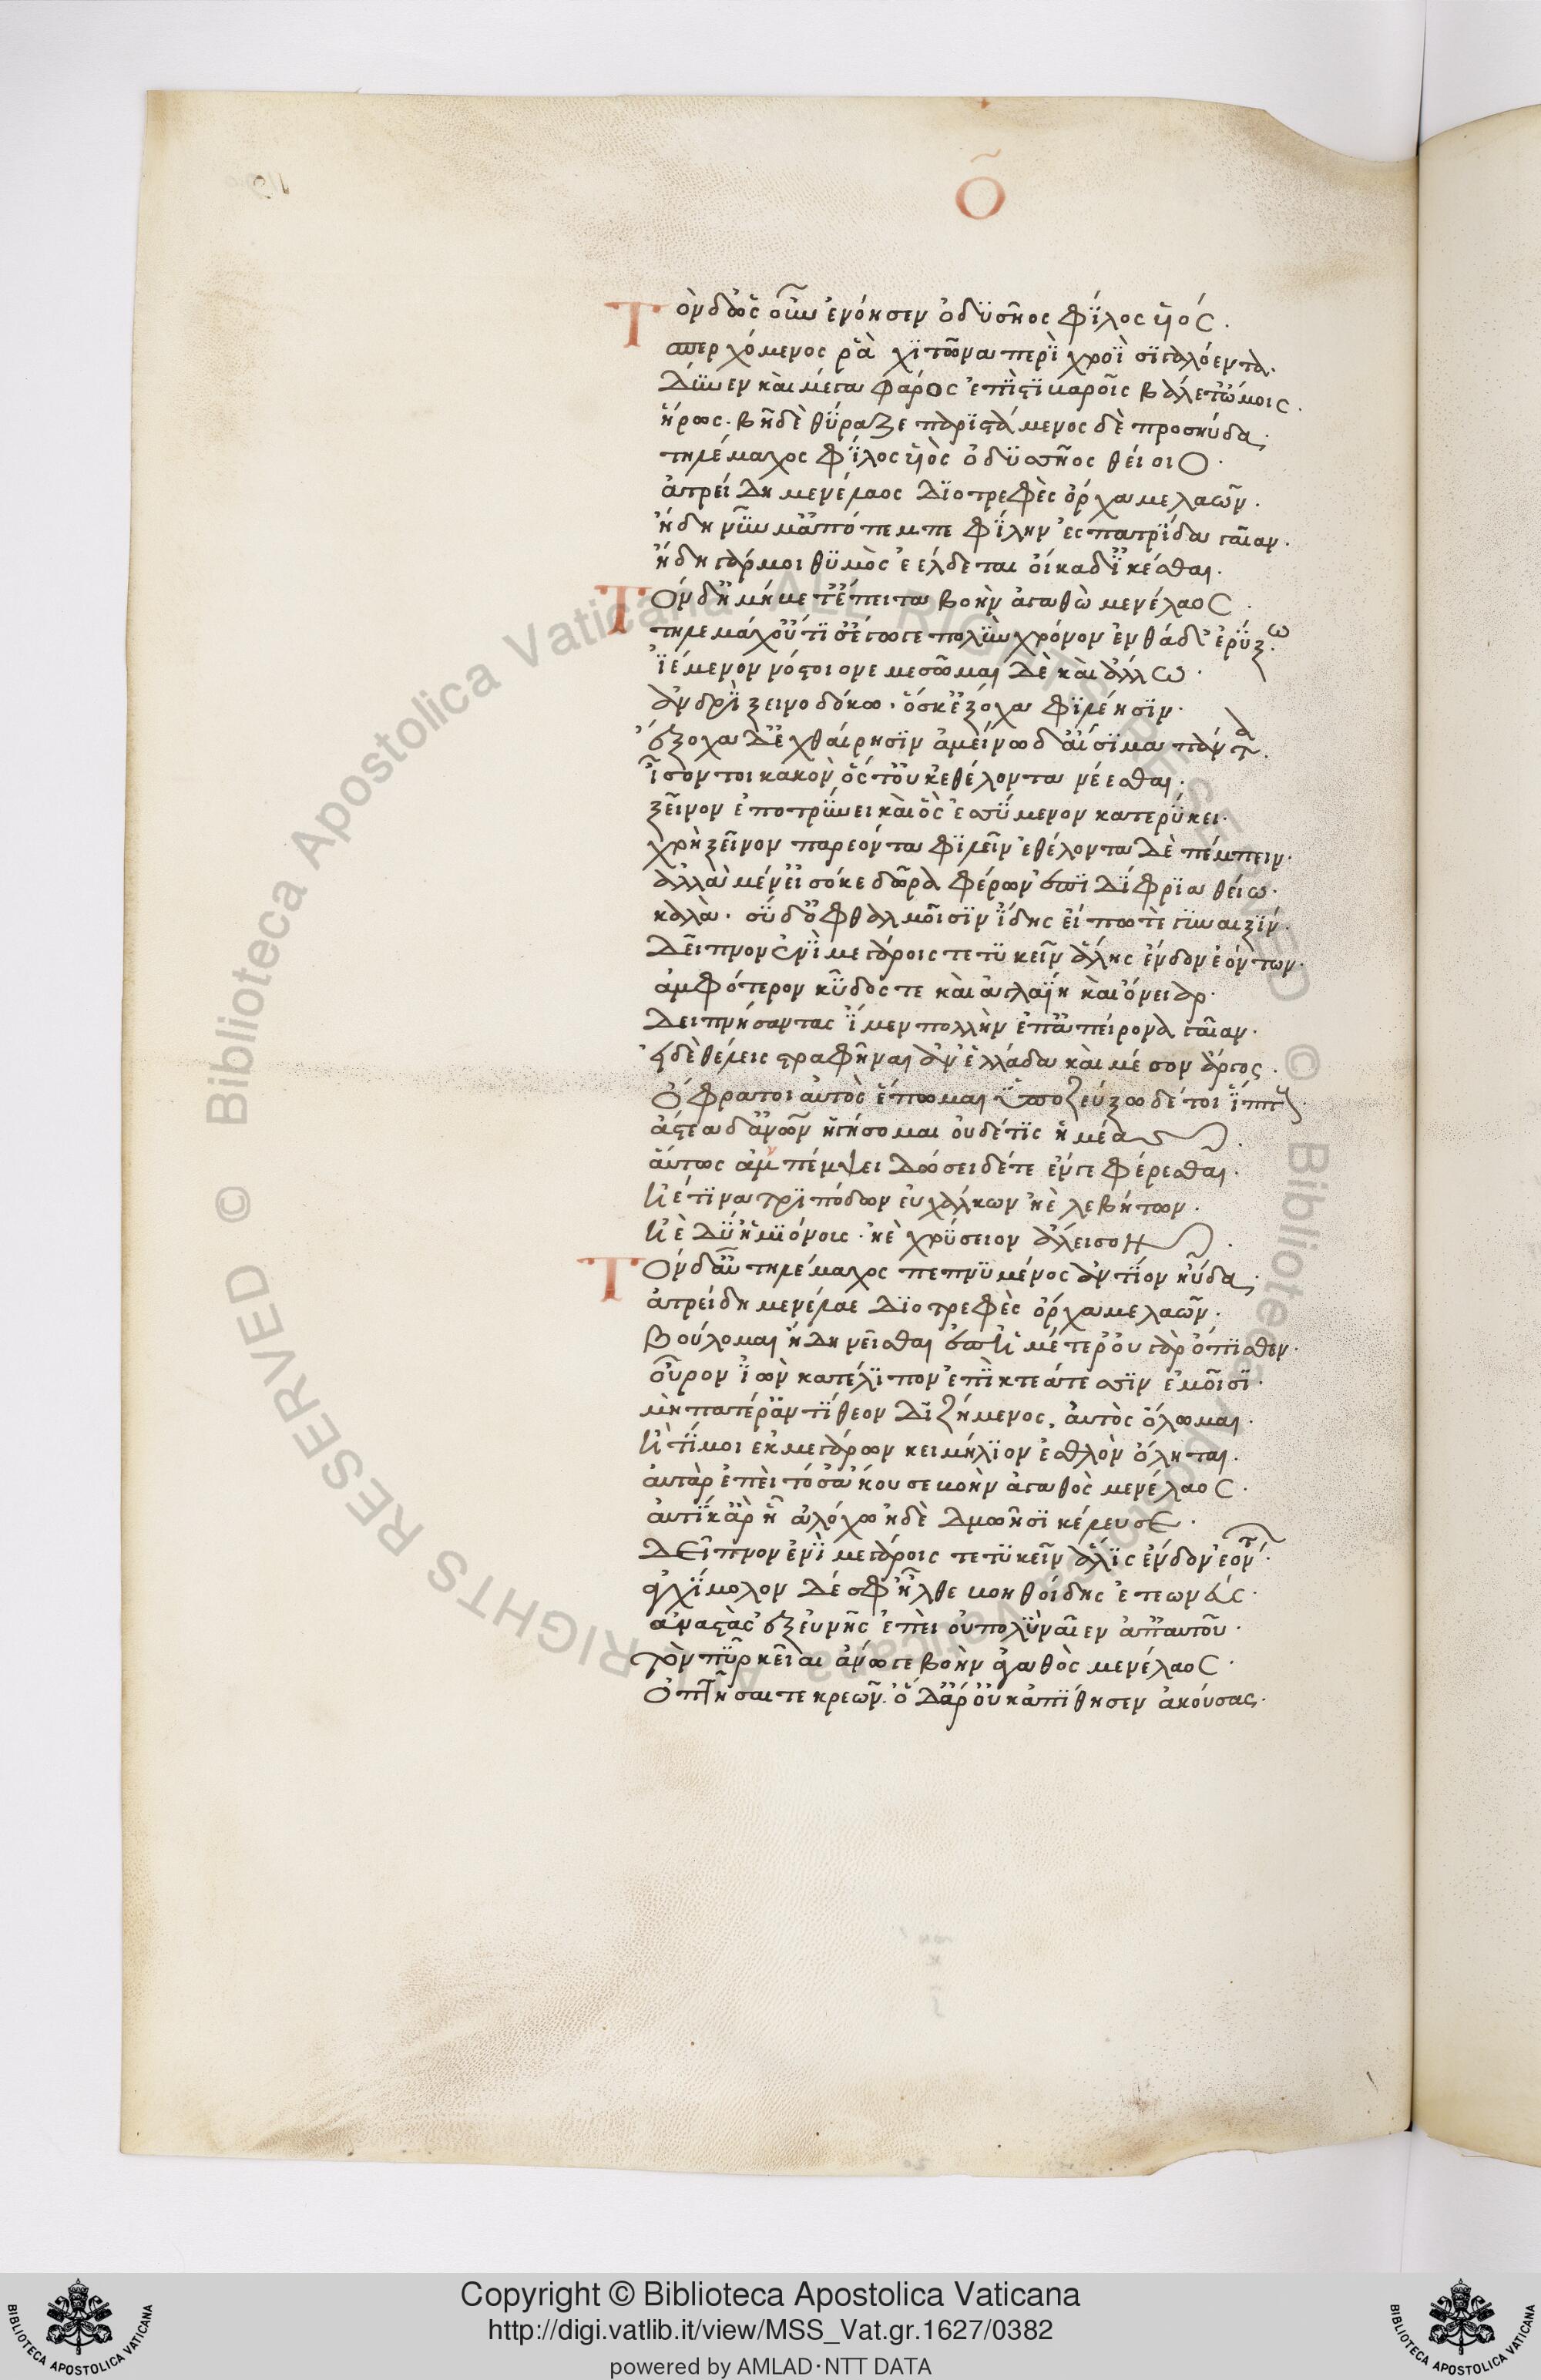 Ο
Τὸν δ' ὡς οὖν ἐνόησεν ὀδϋσῆος φίλος ϋἱός.
σπερχόμενος ῥὰ χϊτῶνα περὶ χροῒ σϊγαλόεντα.
δῦνεν καὶ μέγα φάρος ἐπὶ στϊβαροῖς βάλετ' ὤμοις.
ἥρως. βῆ δὲ θύραζε παρϊστάμενος δὲ προσηύδα.
τηλέμαχος φίλος ϋἱὸς ὀδϋσσῆος θείοιο.
ἀτρείδη μενέλαος διοτρεφὲς ὄρχαμε λαῶν.
ἤδη νῦν μ' ἀπόπεμπε φίλην ἐς πατρίδα γαῖαν.
ἤδη γάρ μοι θϋμὸς ἐέλδεται οἴκαδ' ἱκέσθαι.
Τὸν δ' ἠμήβετ' ἔπειτα βοὴν ἀγαθὼ μενέλαος.
τηλέμαχ' οὔτϊ σ' ἔγωγε πολὺν χρόνον ἐνθάδ' ἐρύξω.
ἱέμενον νόστοιο νεμεσῶμαι δὲ καὶ ἄλλω.
ἀνδρὶ ξεινοδόκω. ὅς κ' ἔξοχα φϊλέησϊν.
ἔξοχα δ' ἐχθαίρησϊν ἀμείνω δ' αἴσϊμα πάντα.
ἶσόν τοι κακὸν ὅς τ' οὐκ ἐθέλοντα νέεσθαι.
ξεῖνον ἐποτρύνει καὶ ὃς ἐσσύμενον κατερύκει.
χρὴ ξεῖνον παρεόντα φϊλεῖν ἐθέλοντα δὲ πέμπειν.
ἀλλὰ μέν' εἰσόκε δῶρα φέρων ἐπϊ δίφρϊα θείω.
καλὰ. σὺ δ' ὀφθαλμοῖσϊν ἴδης εἴπω τὲ γϋναιξίν.
δεῖπνον ἐνὶ μεγάροις τετϋκεῖν ἅλης ἔνδον ἐόντων.
ἀμφότερον κῦδός τε καὶ ἀγλαΐη καὶ ὄνειαρ.
δειπνήσαντας ἴμεν πολλὴν ἐπ' ἀπείρονα γαῖαν.
εἰ δ' ἐθέλεις τραφῆναι ἀν' ἑλλάδα καὶ μέσον ἄργος.
Ὄφρα τοι αὐτὸς ἕπωμαι ὑποζεύξω δέ τοι ἵππους.
ἄστεα δ' ἀνθρώπων ἡγήσομαι οὐδέ τϊς ἡμέας.
αὔτως ἀμπέμψει δώσει δέ τε ἕν γε φέρεσθαι.
ἠέ τϊνα τρϊπόδων εὐχάλκων ἠὲ λεβήτων.
ἠὲ δύ' ἡμϊόνοις. ἠὲ χρύσειον ἄλεισον.
Τὸν δ' αὖ τηλέμαχος πεπνϋμένος ἀντίον ηὔδα.
ἀτρείδη μενέλαε διοτρεφὲς ὄρχαμε λαῶν.
Βούλομαι ἤδη νεῖσθαι ἐφ' ἡμέτερ' οὐ γὰρ ὄπισθεν.
οὖρον ἰὼν κατέλϊπον ἐπὶ κτεάτεσσϊν ἐμοῖσϊ.
μὴ πατέρ' ἀντίθεον διζήμενος, αὐτὸς ὄλωμαι.
ἤ τί μοι ἐκ μεγάρων κειμήλϊον ἐσθλὸν ὄληται.
αὐτὰρ ἐπεὶ τό γ' ἄκουσε βοὴν ἀγαθὸς μενέλαος.
αὐτίκ' ἄρ' ἧ ἀλόχω ἠδὲ δμωῆσϊ κέλευσε.
Δεῖπνον ἐνὶ μεγάροις τετϋκεῖν ἅλϊς ἔνδον ἐόντων.
ἀγχίμολον δέ σφ' ἦλθε βοηθοίδης ἐτεωνεύς.
ἀνστὰς ἐξ εὐνῆς ἐπεὶ οὐ πολὺ ναῖεν ἀπ' αὐτοῦ.
τὸν πῦρ κεῖαι ἄνωγε βοὴν ἀγαθὸς μενέλαος.
Ὀπτῆσαί τε κρεῶν. ὁ δ' ἄρ' οὐκ ἀπίθησεν ἀκούσας.
Copyright © Biblioteca Apostolica Vaticana
http://digi.vatlib.it/view/MSS_Vat.gr.1627/0382
powered by AMLAD·NTT DATA